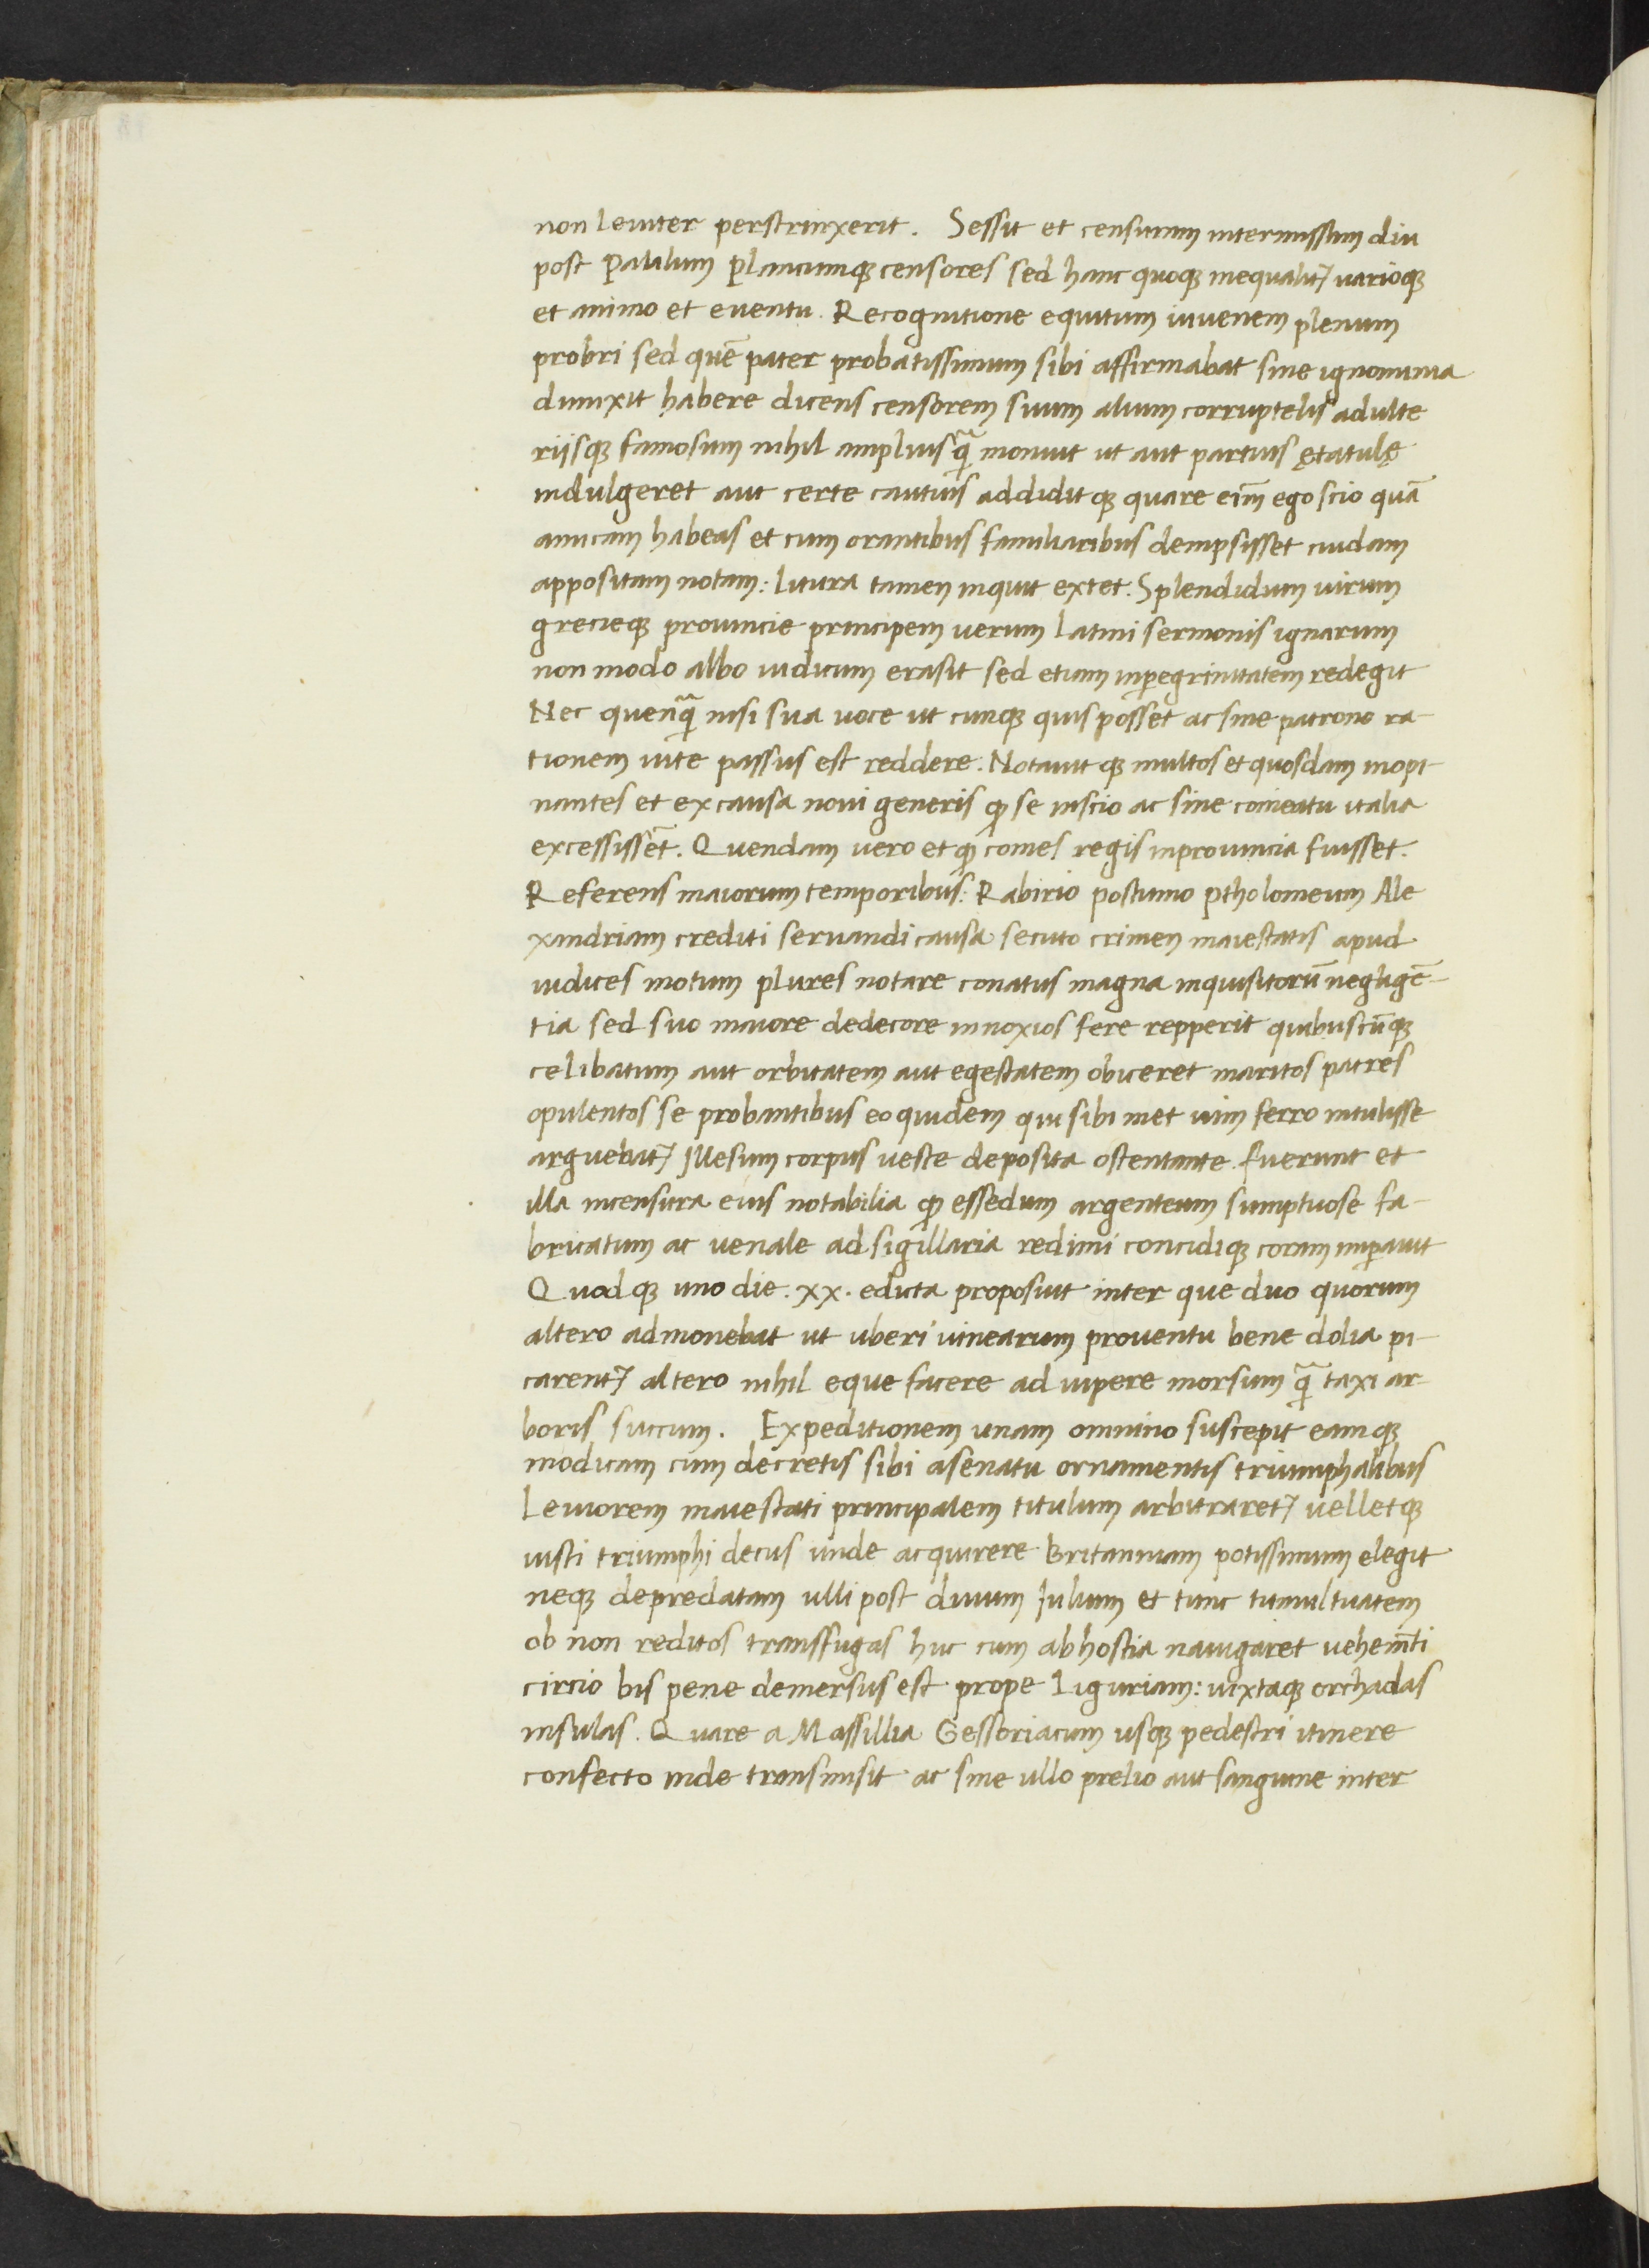 non leuiter perstrinxerit. Sessit et censuram intermissam diu
post Paulum Plancumqꝫ censores sed hanc quoqꝫ inequalit᷑ uarioqꝫ
et animo et euentu. Recognitione equitum iuuenem plenum
probri sed quē pater probatissimum sibi affirmabat sine ignominia
dimixit habere dicens censorem suum alium corruptelis adulte
riisqꝫ famosum nihil amplius qᷓ monuit ut aut partius ętatulę
indulgeret aut certe cautius addiditqꝫ quare eim̄ ego scio quā
amicam habeas et cum orantibus familiaribus dempsisset cuidam
appositam notam: litura tamen inquit extet. Splendidum uirum
grecieqꝫ prouincie principem uerum latini sermonis ignarum
non modo albo iudicum erasit sed etiam inꝑegrinitatem redegit
Nec quenqᷓ nisi sua uoce ut cunqꝫ quis posset ac sine patrono ra-
tionem uite passus est reddere. Notauitqꝫ multos et quosdam inopi-
nantes et ex causa noui generis ꝙ se inscio ac sine com̄eatu italia
excessissēt. Quendam uero et ꝙ comes regis inprouincia fuisset.
Referens maiorum temporibus: Rabirio postumo Ptholomeum Ale
xandriam crediti seruandi causa secuto crimen maiestatis apud
iudices motum plures notare conatus magna inquisitorū negligē-
tia sed suo maiore dedecore innoxios fere repperit quibuscūqꝫ
celibatum aut orbitatem aut egestatem obiceret maritos patres
opulentos se probantibus eo quidem qui sibi met uim ferro intulisse
arguebat᷑ Illesum corpus ueste deposita ostentante. fuerunt et
illa incensura eius notabilia ꝙ essedum argenteum sumptuose fa-
bricatum ac uenale ad sigillaria redimi concidiqꝫ coram imꝑauit
Quodqꝫ uno die .xx. edicta proposuit inter que duo quorum
altero admonebat ut uberi uinearum prouentu bene dolia pi-
carent᷑ altero nihil eque facere ad uipere morsum qᷓ taxi ar-
boris succum. Expeditionem unam omnino suscepit eamqꝫ
modicam cum decretis sibi asenatu ornamentis triumphalibus
Leuiorem maiestati principalem titulum arbitraret᷑ uelletqꝫ
iusti triumphi decus unde acquirere Britanniam potissimum elegit
neqꝫ depredatam ulli post diuum Julium et tunc tumultuatem
ob non reditos transfugas huc cum abhostia nauigaret uehem̄ti
circio bis pene demersus est prope Liguriam: iuxtaqꝫ orchadas
insulas. Quare a Massillia Gessoriacum usqꝫ pedestri itinere
confecto inde transmisit ac sine ullo prelio aut sanguine inter